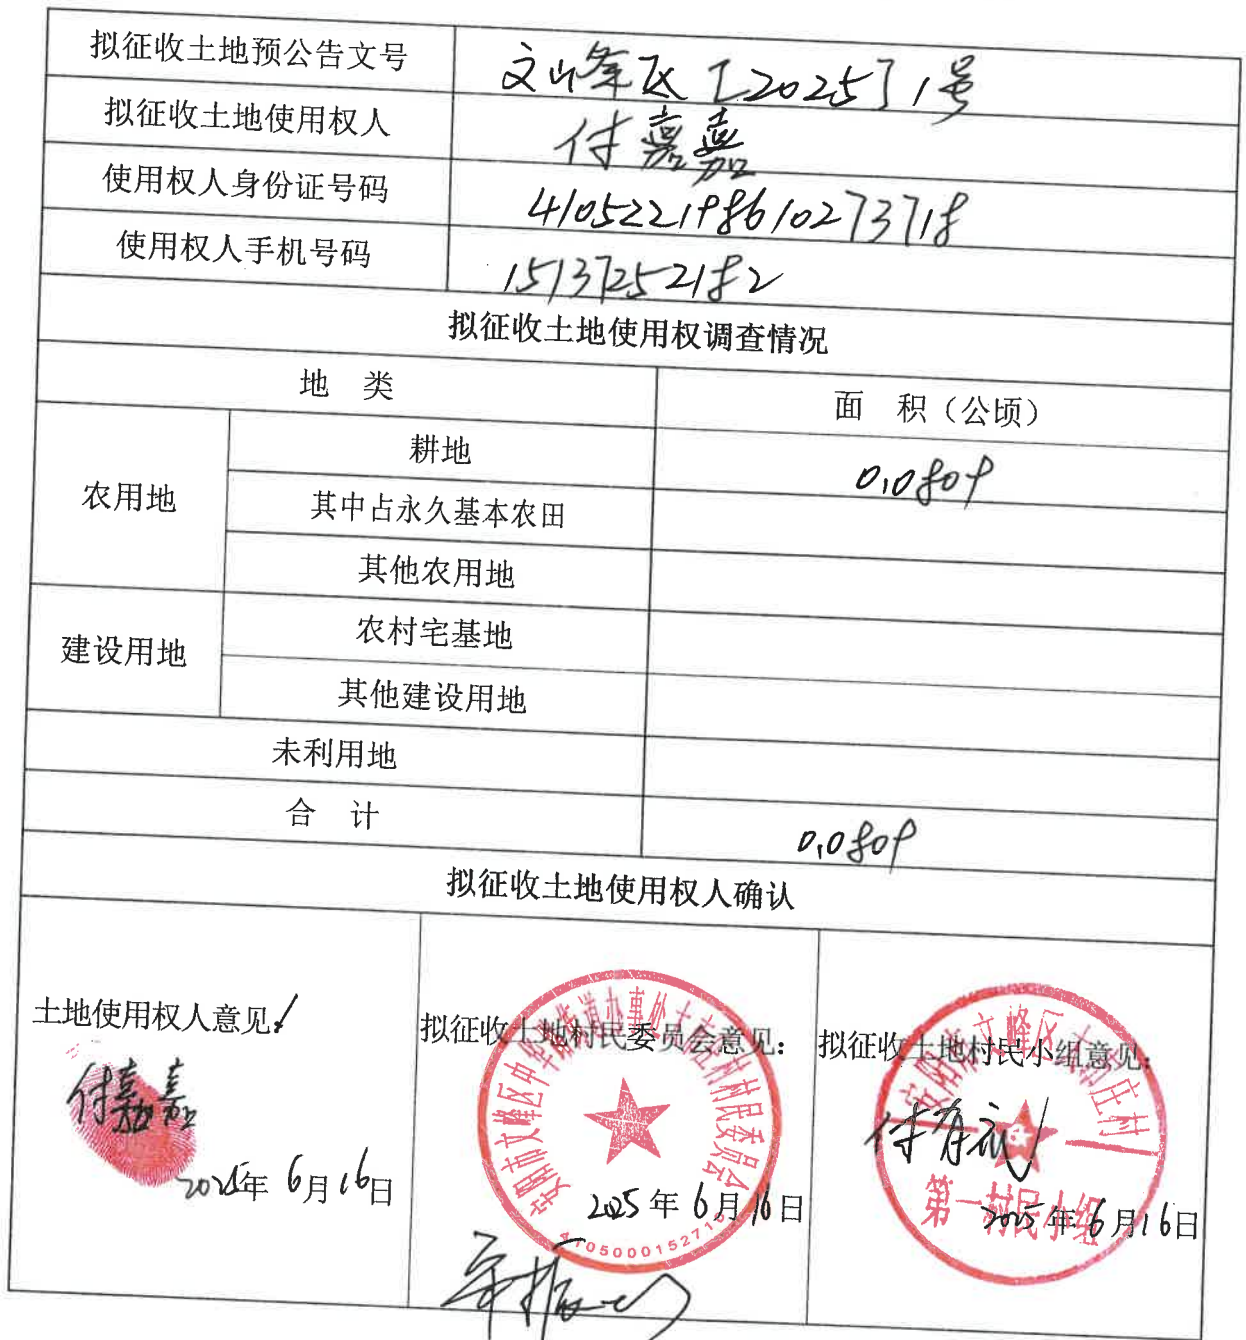 拟征收土地预公告文号 文峰区〔2025〕1号
拟征收土地使用权人 付嘉嘉
使用权人身份证号码 410522198610273718
使用权人手机号码 15137252182
拟征收土地使用权调查情况
地 类 面 积（公顷）
农用地 耕地 0.0809
其中占永久基本农田
其他农用地
建设用地 农村宅基地
其他建设用地
未利用地
合 计 0.0809
拟征收土地使用权人确认
土地使用权人意见：
付嘉嘉
2025年6月16日
拟征收土地村民委员会意见：
2025年6月16日
安阳市文峰区中华路街道办事处 村村民委员会
4105000152710
拟征收土地村民小组意见：
付有
2025年6月16日
安阳市文峰区 庄村
第一村民小组